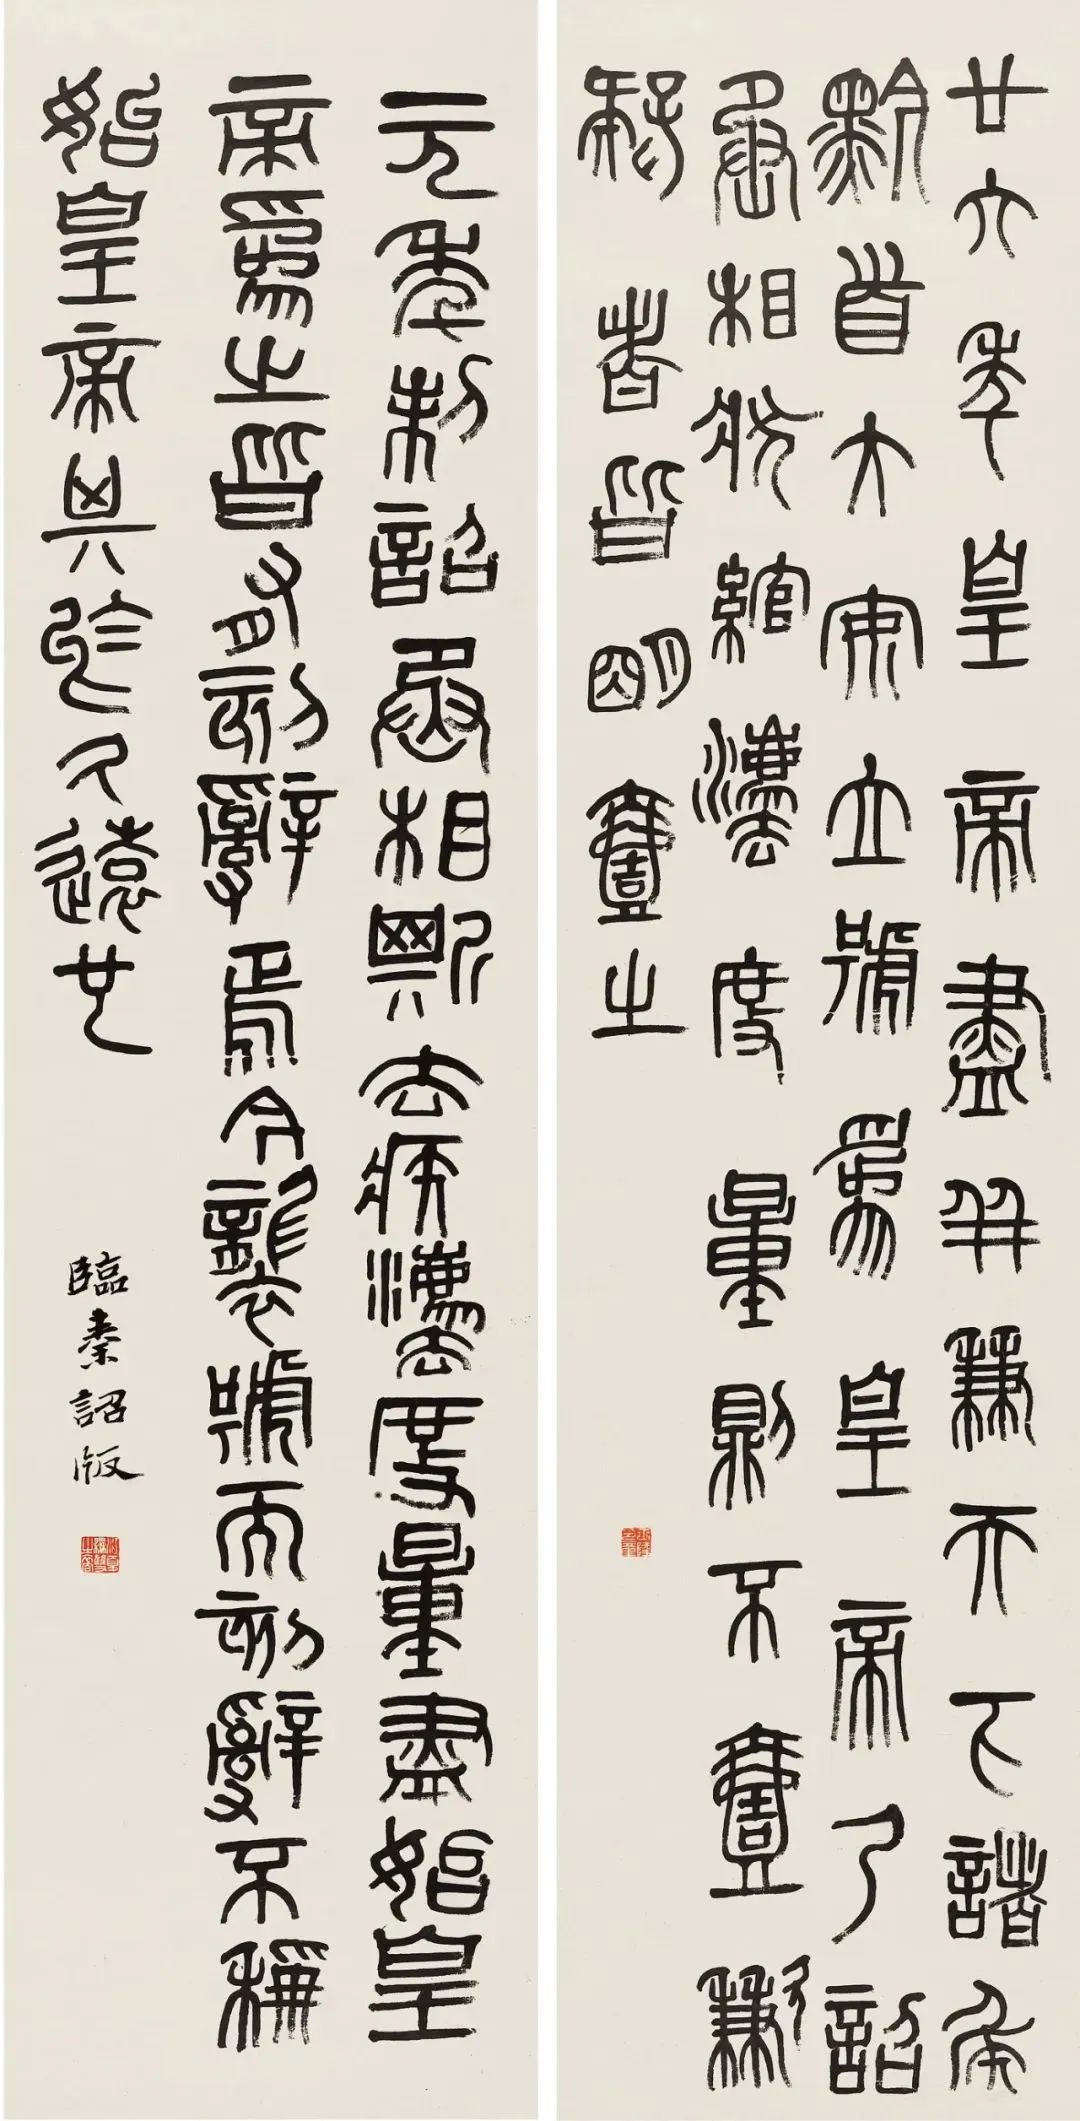 廿六年皇帝盡并兼天下諸侯
黔首大安立號為皇帝乃詔
丞相狀綰灋度量則不壹歉
疑者皆明壹之
元年制詔丞相斯去疾灋度量盡始皇
帝為之皆有刻辭焉今襲號而刻辭不稱
始皇帝其於久遠也
臨秦詔版